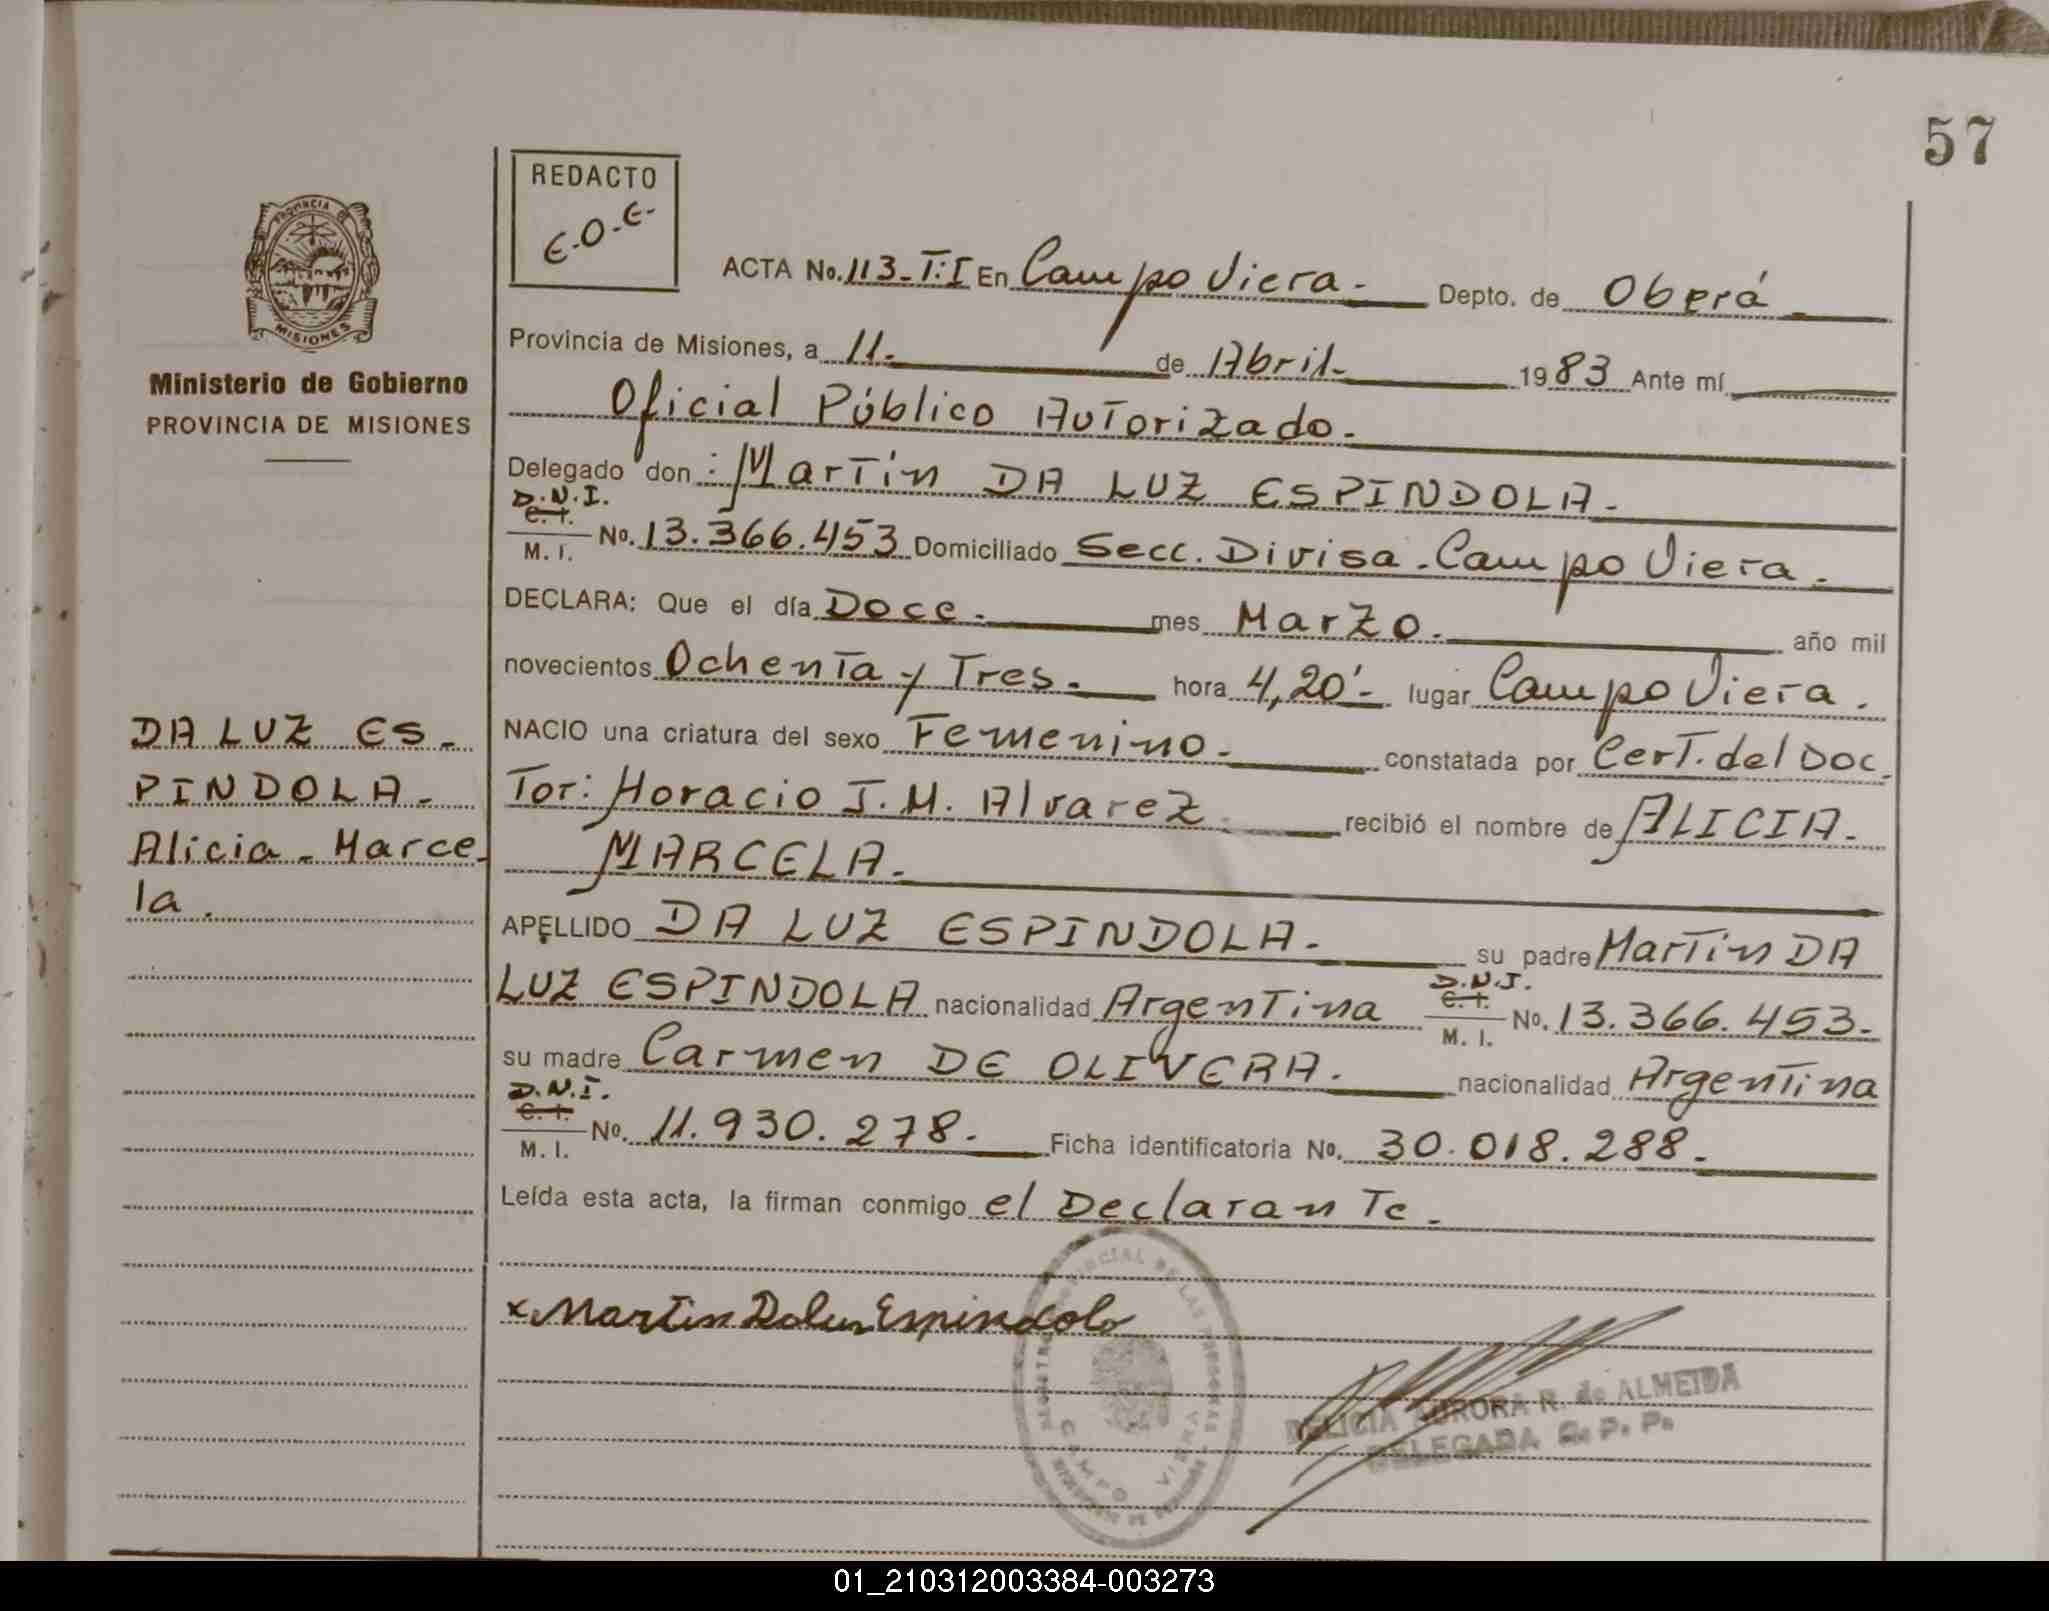 57
REDACTO
E.O.E.
PROVINCIA DE
MISIONES
Ministerio de Gobierno
PROVINCIA DE MISIONES
DA LUZ ES-
PINDOLA-
Alicia-Marce-
la.
ACTA No. 113-T:I En Campo Viera- Depto. de Oberá
Provincia de Misiones, a 11- de Abril- 1983 Ante mí
Oficial Público Autorizado-
Delegado don: Martin DA LUZ ESPINDOLA-
D.N.I.
C. I.
M. I. No. 13.366.453 Domiciliado Secc. Divisa. Campo Viera-
DECLARA: Que el día Doce- mes Marzo- año mil
novecientos Ochenta y Tres- hora 4,20'- lugar Campo Viera.
NACIO una criatura del sexo Femenino- constatada por Cert. del Doc-
tor: Horacio J.M. Alvarez recibió el nombre de ALICIA-
MARCELA-
APELLIDO DA LUZ ESPINDOLA- su padre Martin DA
LUZ ESPINDOLA nacionalidad Argentina D.N.I. C. I. M. I. No. 13.366.453-
su madre Carmen DE OLIVERA- nacionalidad Argentina
D.N.I.
C. I.
M. I. No. 11.930.278- Ficha identificatoria No. 30.018.288-
Leída esta acta, la firman conmigo el Declarante-
x Martin Daluz Espindola
CAMPO VIERA
DELICIA AURORA R. de ALMEIDA
DELEGADA R. P. P.
01_210312003384-003273